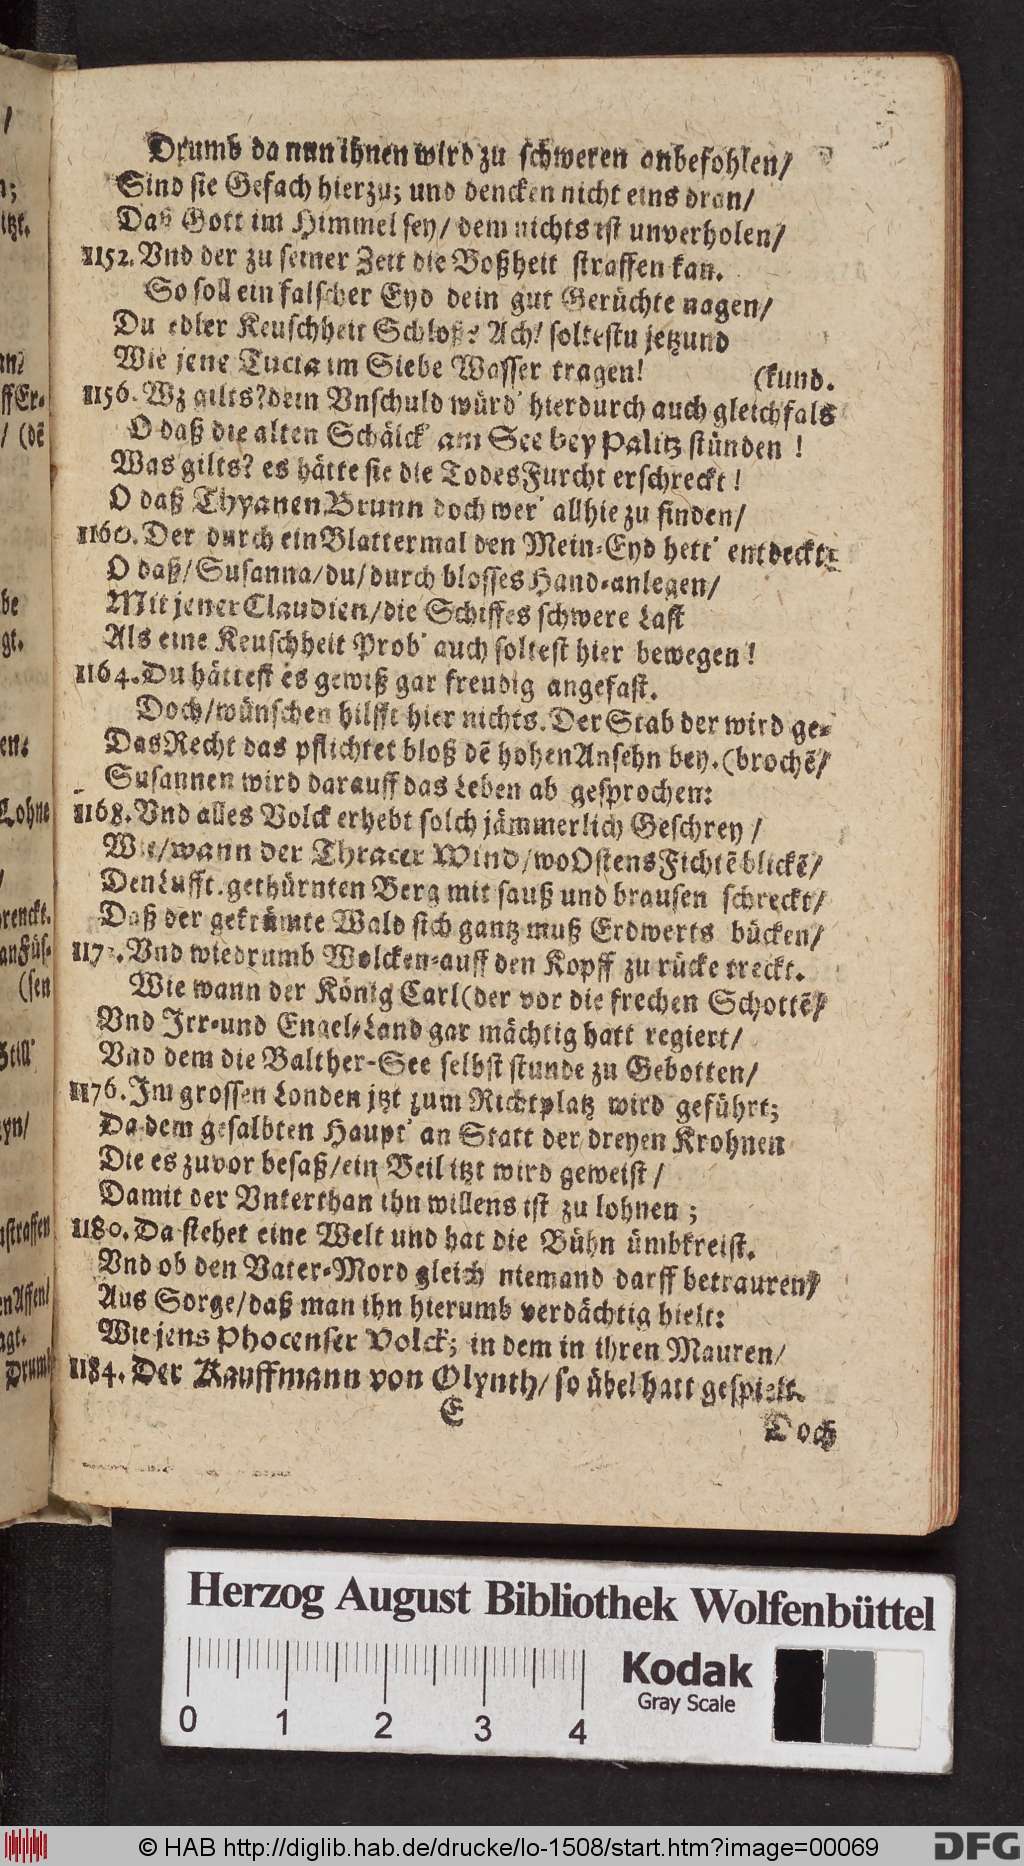 Drumb da nun ihnen wird zu schweren anbefohlen/
Sind sie Gefach hierzu; und dencken nicht eins dran/
Daß Gott im Himmel sey/ dem nichts ist unverholen/
1152. Vnd der zu seiner Zeit die Boßheit straffen kan.
So soll ein falscher Eyd dein gut Gerüchte nagen/
Du edler Keuschheit Schloß? Ach! soltestu jetzund
Wie jene Tucia im Siebe Wasser tragen! (kund.
1156. Wz gilts? dein Vnschuld würd' hierdurch auch gleichfals
O daß die alten Schälck' am See bey Palitz stünden !
Was gilts? es hätte sie die TodesFurcht erschreckt!
O daß Thyanen Brunn doch wer' allhie zu finden/
1160. Der durch ein Blattermal den Mein-Eyd hett' entdeckt:
O daß/ Susanna/ du/ durch blosses Hand-anlegen/
Mit jener Claudien/ die Schiffes schwere Last
Als eine Keuschheit Prob' auch soltest hier bewegen!
1164. Du hättest es gewiß gar freudig angefast.
Doch/ wünschen hilfft hier nichts. Der Stab der wird ge-
Das Recht das pflichtet bloß dē hohen Ansehn bey. (brochē/
Susannen wird darauff das Leben ab gesprochen:
1168. Vnd alles Volck erhebt solch jämmerlich Geschrey /
Wie/ wann der Thracer Wind/ wo Ostens Fichtē blickē/
Den Lufft-gethürnten Berg mit sauß und brausen schreckt/
Daß der gekrümte Wald sich gantz muß Erdwerts bücken/
117 . Vnd wiedrumb Wolcken-auff den Kopff zu rücke treckt.
Wie wann der König Carl (der vor die frechen Schottē/
Vnd Irr-und Engel-Land gar mächtig hatt regiert/
Vnd dem die Balther-See selbst stunde zu Gebotten/
1176. Im grossen Londen jtzt zum Richtplatz wird geführt;
Da dem gesalbten Haupt' an Statt der dreyen Krohnen
Die es zuvor besaß/ ein Beil itzt wird geweist/
Damit der Vnterthan ihn willens ist zu lohnen ;
1180. Da stehet eine Welt und hat die Bühn ümbkreist.
Vnd ob den Vater-Mord gleich niemand darff betrauren/
Aus Sorge/ daß man ihn hierumb verdächtig hielt:
Wie jens Phocenser Volck; in dem in ihren Mauren/
1184. Der Kauffmann von Olynth/ so übel hatt gespielt.
E
Doch
itzt.
ff Er-
/ (dē
be
gt.
Lohne
renckt.
(sen
yn/
straffen
agt.
Drumb
Herzog August Bibliothek Wolfenbüttel
0 1 2 3 4
Kodak
Gray Scale
© HAB http://diglib.hab.de/drucke/lo-1508/start.htm?image=00069
DFG